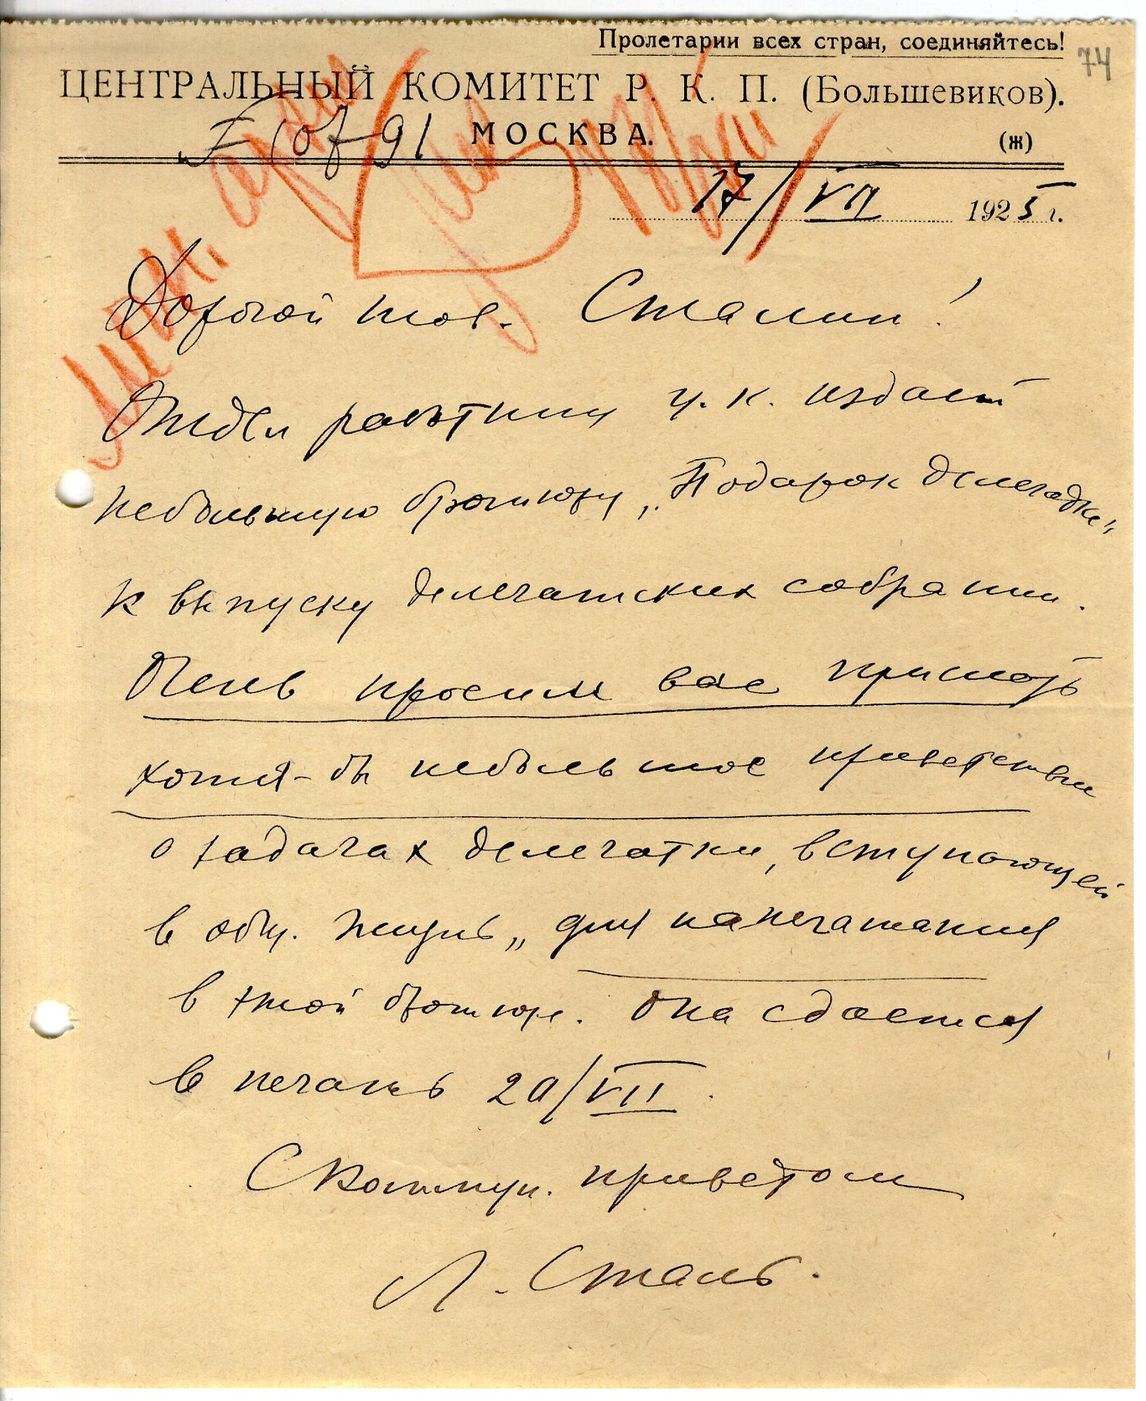 Пролетарии всех стран, соединяйтесь!
74
ЦЕНТРАЛЬНЫЙ КОМИТЕТ Р. К. П. (Большевиков).
МОСКВА. (ж)
17/VII 1925 г.
Дорогой тов. Сталин!
Отдел работниц Ц. К. издает
небольшую брошюру „Подарок делегатке"
к выпуску делегатских собраний.
Очень просим вас прислать
хотя-бы небольшое приветствие
о задачах делегатки, вступающей
в общ. жизнь, для напечатания
в этой брошюре. Она сдается
в печать 20/VII.
С коммун. приветом
Л. Сталь.